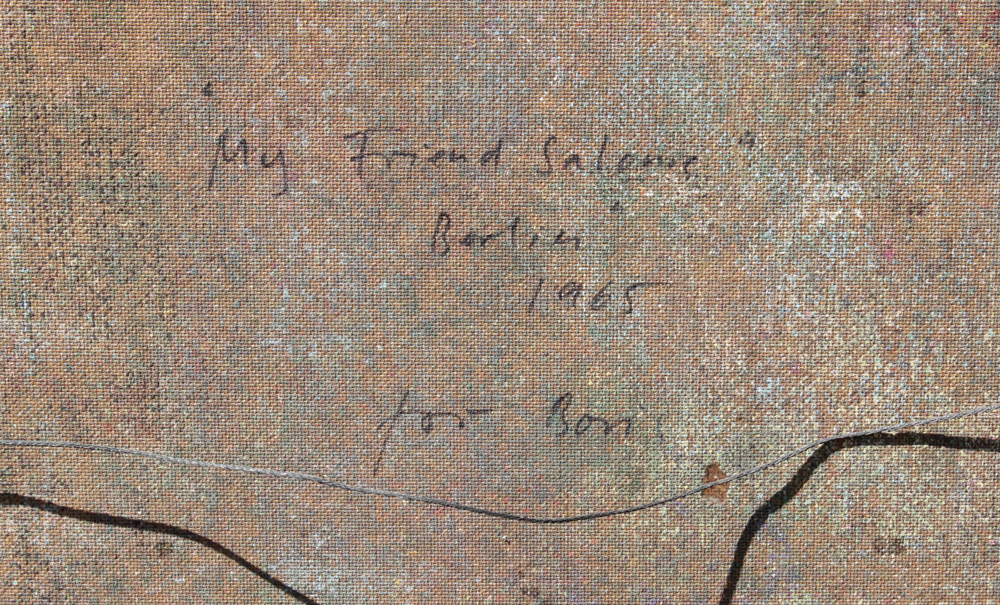 "My Friend Salome"
Berlin
1965
for Boris